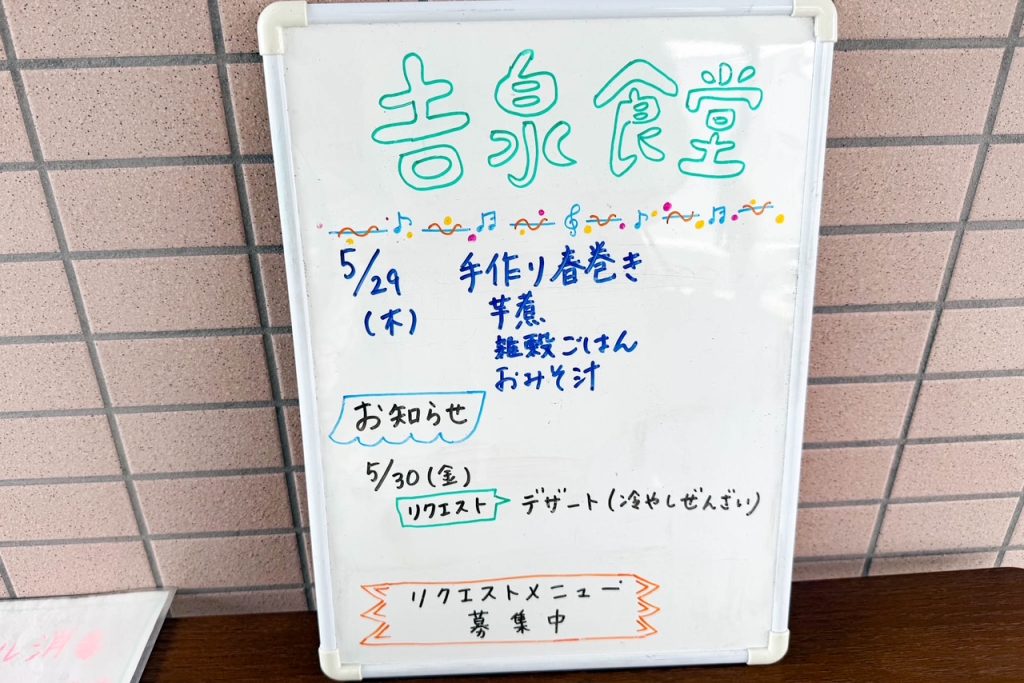 吉泉食堂
5/29 手作り春巻き
(木) 芋煮
雑穀ごはん
おみそ汁
お知らせ
5/30(金)
リクエスト デザート(冷やしぜんざい)
リクエストメニュー
募集中